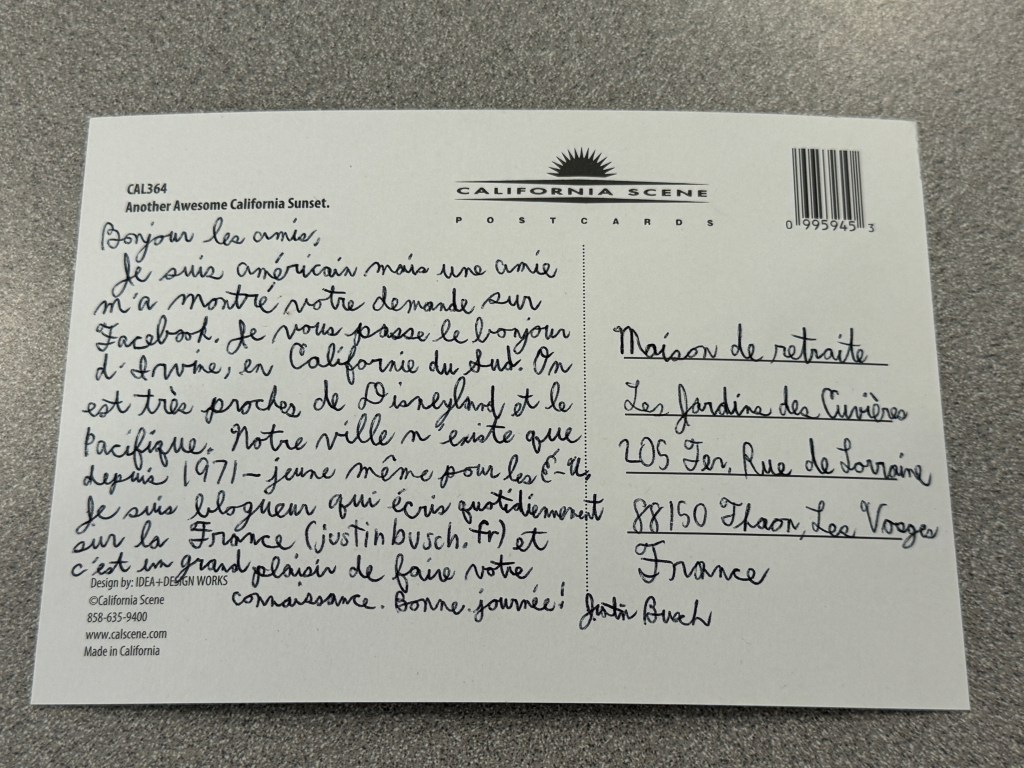 CAL364
Another Awesome California Sunset.
CALIFORNIA SCENE
POSTCARDS
0 995945 3
Bonjour les amis,
Je suis américain mais une amie
m'a montré votre demande sur
Facebook. Je vous passe le bonjour
d'Irvine, en Californie du Sud. On
est très proches de Disneyland et le
Pacifique. Notre ville n'existe que
depuis 1971 – jeune même pour les É-U.
Je suis blogueur qui écris quotidiennement
sur la France (justinbusch.fr) et
c'est un grand plaisir de faire votre
connaissance. Bonne journée! Justin Busch
Maison de retraite
Les Jardins des Cuvières
205 Ter, Rue de Lorraine
88150 Thaon, Les Vosges
France
Design by: IDEA+DESIGN WORKS
©California Scene
858-635-9400
www.calscene.com
Made in California